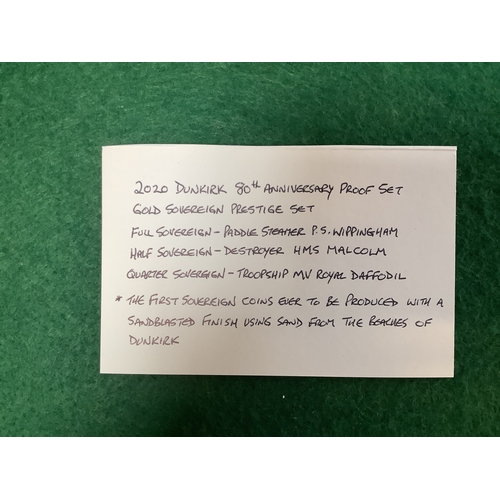 2020 DUNKIRK 80th ANNIVERSARY PROOF SET
GOLD SOVEREIGN PRESTIGE SET
FULL SOVEREIGN - PADDLE STEAMER P.S. WIPPINGHAM
HALF SOVEREIGN - DESTROYER HMS MALCOLM
QUARTER SOVEREIGN - TROOPSHIP MV ROYAL DAFFODIL
* THE FIRST SOVEREIGN COINS EVER TO BE PRODUCED WITH A
SANDBLASTED FINISH USING SAND FROM THE BEACHES OF
DUNKIRK